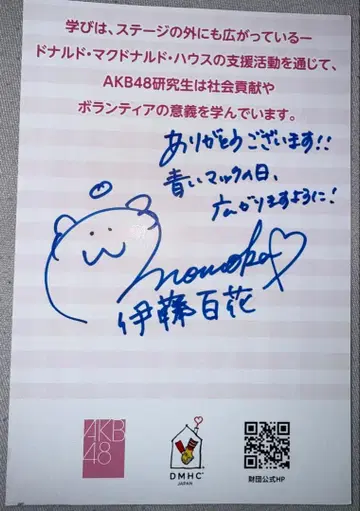 学びは、ステージの外にも広がっている—
ドナルド・マクドナルド・ハウスの支援活動を通じて、
AKB48研究生は社会貢献や
ボランティアの意義を学んでいます。
ありがとうございます!!
青いマックの日、
広がりますように!
momoka
伊藤百花
AKB
48
DMHC
JAPAN
財団公式HP